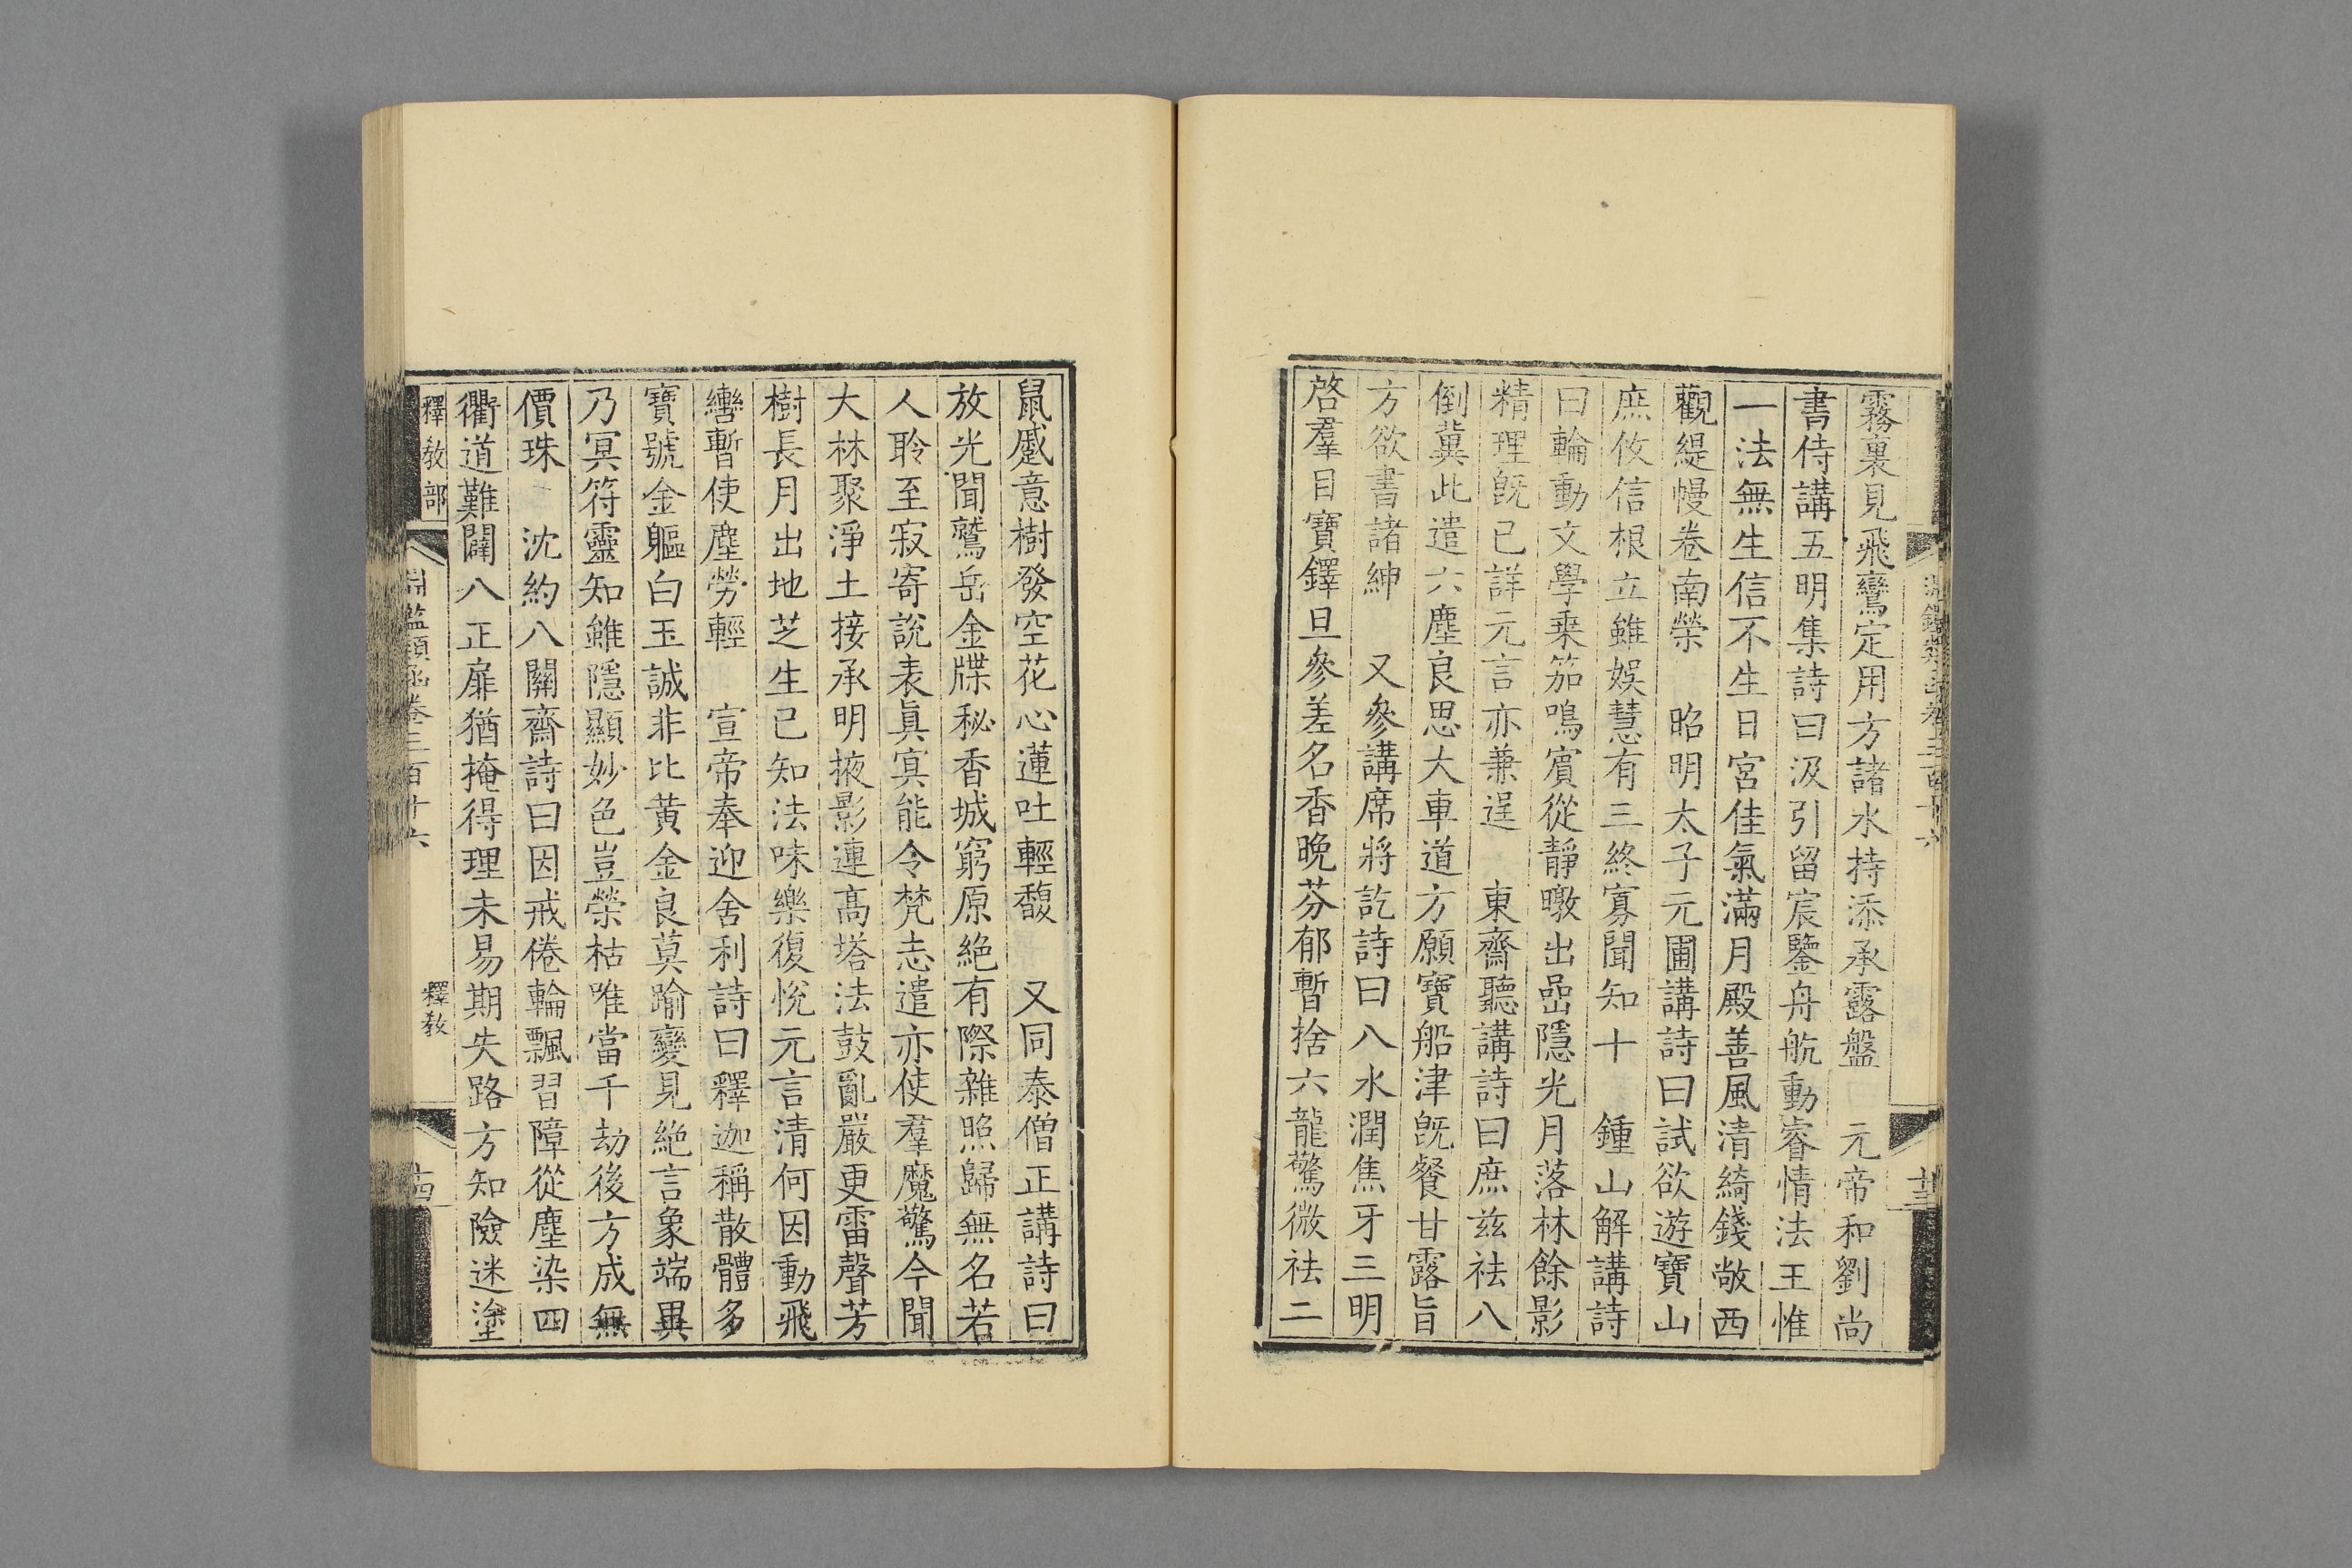 霧裏見飛鸞定用方諸水持添承露盤　元帝和劉尚
書侍講五明集詩曰汲引留宸鑒舟航動睿情法王惟
一法無生信不生日宮佳氣滿月殿善風清綺錢敞西
觀緹幔卷南榮　昭明太子元圃講詩曰試欲遊寶山
庶攸信根立雖娛慧有三終寡聞知十　鍾山解講詩
曰輪動文學乗笳鳴賓從靜暾出嵒隱光月落林餘影
精理旣已詳元言亦兼逞　東齋聽講詩曰庶兹祛八
倒冀此遣六塵良思大車道方願寶船津旣餐甘露旨
方欲書諸紳　又參講席將訖詩曰八水潤焦牙三明
啓羣目寶鐸旦參差名香晚芬郁暫捨六龍驚微祛二
鼠慼意樹發空花心蓮吐輕馥　又同泰僧正講詩曰
放光聞鷲岳金牒秘香城窮原絶有際雜照歸無名若
人聆至寂寄說表眞冥能令梵志遣亦使羣魔驚今聞
大林聚淨土接承明掖影連髙塔法鼓亂嚴更雷聲芳
樹長月出地芝生已知法味樂復悅元言清何因動飛
轡暫使塵勞輕　宣帝奉迎舍利詩曰釋迦稱散體多
寶號金軀白玉誠非比黄金良莫踰變見絶言象端異
乃冥符靈知雖隱顯妙色豈榮枯唯當千劫後方成無
價珠　沈約八關齋詩曰因戒倦輪飄習障從塵染四
衢道難闢八正扉猶掩得理未易期失路方知險迷塗
釋教部
淵鑑類函卷三百十六
釋教